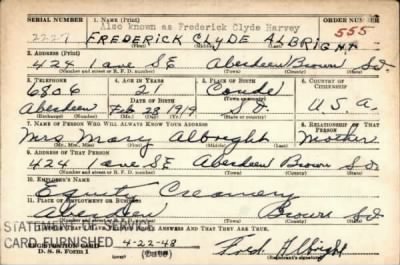 SERIAL NUMBER 1. NAME (Print) ORDER NUMBER
Also known as Frederick Clyde Harvey
2227 FREDERICK CLYDE ALBRIGHT 555
(First) (Middle) (Last)
2. ADDRESS (Print)
424 1 ave SE Aberdeen Brown S.D.
(Number and street or R. F. D. number) (Town) (County) (State)
3. TELEPHONE 4. AGE IN YEARS 5. PLACE OF BIRTH 6. COUNTRY OF CITIZENSHIP
6806 21 Conde
DATE OF BIRTH
Aberdeen Feb 28 1919 S.D. U.S.A.
(Exchange) (Number) (Mo.) (Day) (Yr.) (State or country)
7. NAME OF PERSON WHO WILL ALWAYS KNOW YOUR ADDRESS 8. RELATIONSHIP OF THAT PERSON
Mrs Mary Albright Mother
(Mr., Mrs., Miss) (First) (Middle) (Last)
9. ADDRESS OF THAT PERSON
424 1 ave SE Aberdeen Brown S.D.
(Number and street or R. F. D. number) (Town) (County) (State)
10. EMPLOYER'S NAME
Equity Creamery
11. PLACE OF EMPLOYMENT OR BUSINESS
Aberdeen Brown S.D.
(Town) (County) (State)
STATEMENT OF SERVICE
ANSWERS AND THAT THEY ARE TRUE.
CARD FURNISHED
REGISTRATION CARD 4-22-48 Fred Albright
D. S. S. Form 1 (Date) (Registrant's signature)